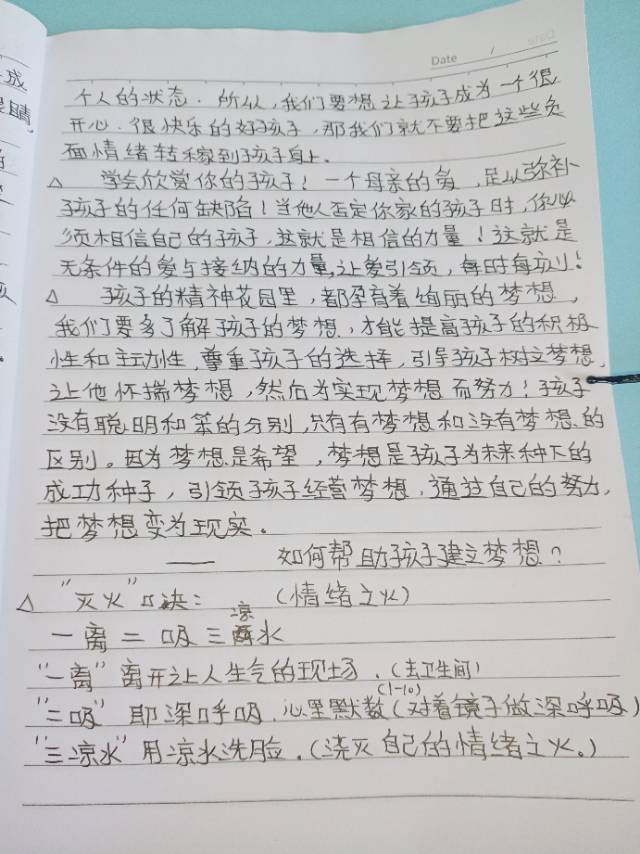 Date /
个人的状态. 所以,我们要想让孩子成为一个很
开心.很快乐的好孩子,那我们就不要把这些负
面情绪转嫁到孩子身上.
△ 学会欣赏你的孩子!一个母亲的爱,足以弥补
孩子的任何缺陷!当他人否定你家的孩子时,你必
须相信自己的孩子,这就是相信的力量!这就是
无条件的爱与接纳的力量,让爱引领,每时每刻!
△ 孩子的精神花园里,都孕育着绚丽的梦想,
我们要多了解孩子的梦想,才能提高孩子的积极
性和主动性,尊重孩子的选择,引导孩子树立梦想,
让他怀揣梦想,然后为实现梦想而努力!孩子
没有聪明和笨的分别,只有有梦想和没有梦想的
区别。因为梦想是希望,梦想是孩子为未来种下的
成功种子,引领孩子经营梦想,通过自己的努力,
把梦想变为现实.
—— 如何帮助孩子建立梦想?
△ "灭火"口诀: (情绪之火)
一离二吸三凉水
"一离"离开让人生气的现场.(去卫生间)
"二吸"即深呼吸.心里默数(1-10)(对着镜子做深呼吸)
"三凉水"用凉水洗脸.(浇灭自己的情绪之火。)
成
眼睛